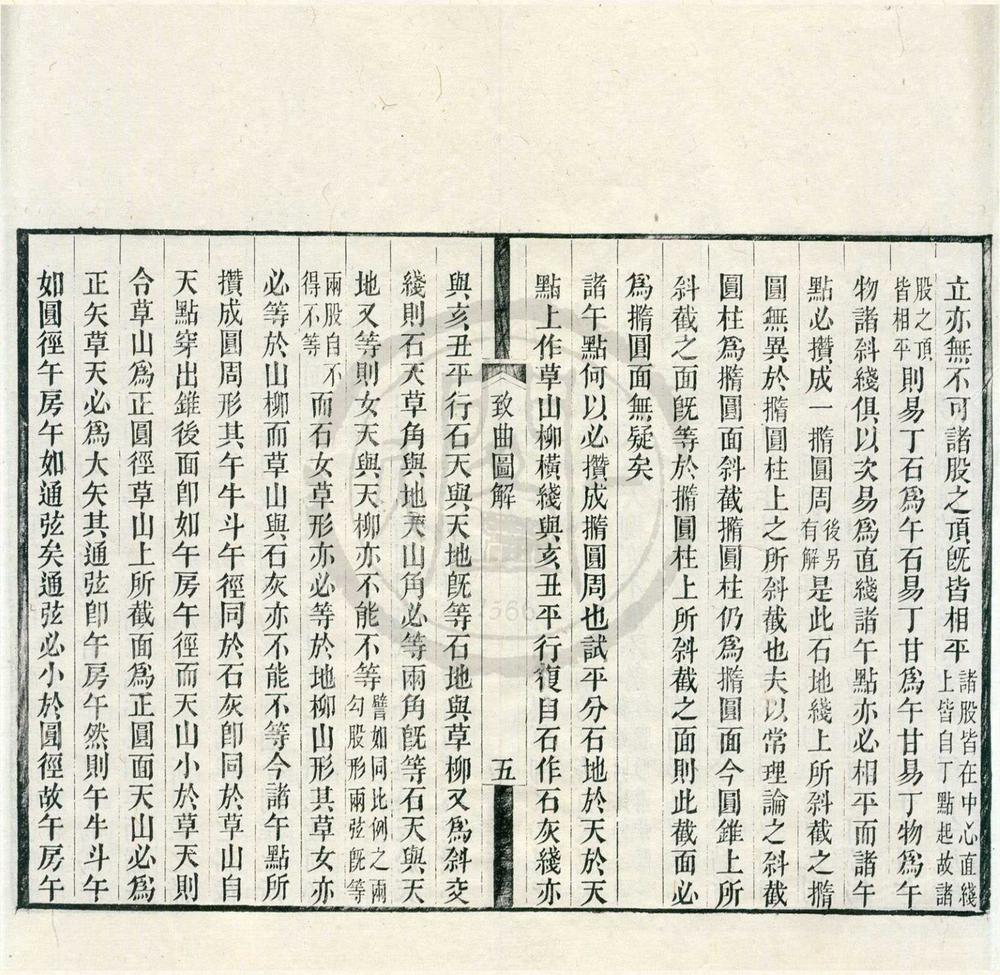 立亦無不可諸股之頂旣皆相平諸股皆在中心直綫上皆自丁點起故諸
股之頂皆相平則易丁石爲午石易丁甘爲午甘易丁物爲午
物諸斜綫俱以次易爲直綫諸午點亦必相平而諸午
點必攢成一撱圓周後另有解是此石地綫上所斜截之撱
圓無異於撱圓柱上之所斜截也夫以常理論之斜截
圓柱爲撱圓面斜截撱圓柱仍爲撱圓面今圓錐上所
斜截之面旣等於撱圓柱上所斜截之面則此截面必
爲撱圓面無疑矣
諸午點何以必攢成撱圓周也試平分石地於天於天
點上作草山柳橫綫與亥丑平行復自石作石灰綫亦
致曲圖解
五
與亥丑平行石天與天地旣等石地與草柳又爲斜交
綫則石天草角與地天山角必等兩角旣等石天與天
地又等則女天與天柳亦不能不等譬如同比例之兩勾股形兩弦旣等
兩股自不得不等而石女草形亦必等於地柳山形其草女亦
必等於山柳而草山與石灰亦不能不等今諸午點所
攢成圓周形其午牛斗午徑同於石灰卽同於草山自
天點穿出錐後面卽如午房午徑而天山小於草天則
合草山爲正圓徑草山上所截面爲正圓面天山必爲
正矢草天必爲大矢其通弦卽午房午然則午牛斗午
如圓徑午房午如通弦矣通弦必小於圓徑故午房午